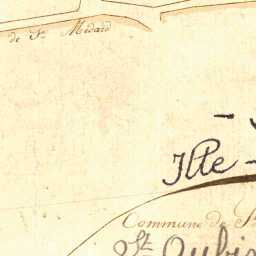 de St Médard
Ille -
Commune de S
St Aubi